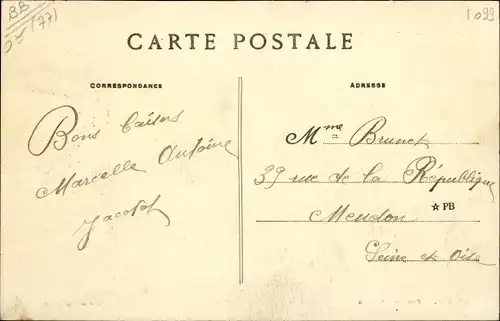 BB
(77)
1099
CARTE POSTALE
CORRESPONDANCE
ADRESSE
Bons baisers
Marcelle Antoine
Jacotot
Mme Brunet
39 rue de la République
Meudon
☆PB
Seine et Oise